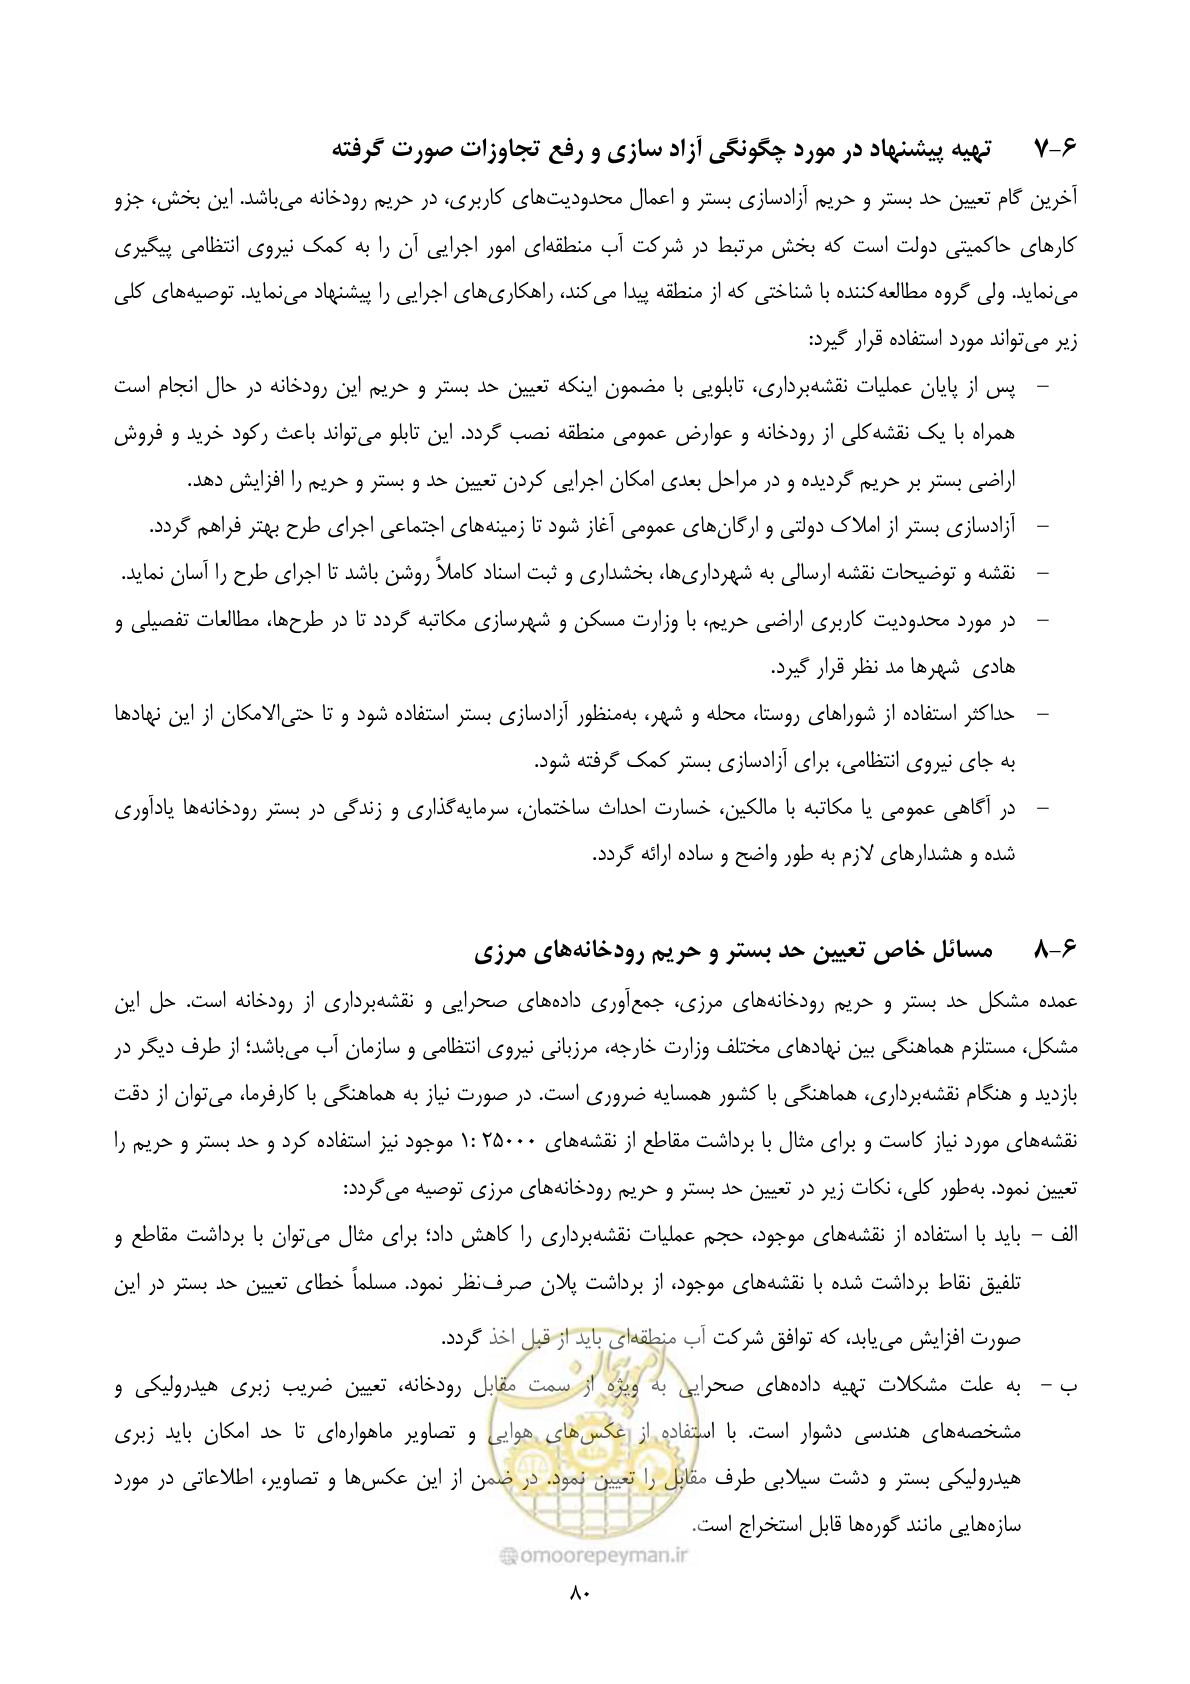 ۷-۶ تهیه پیشنهاد در مورد چگونگی آزاد سازی و رفع تجاوزات صورت گرفته
آخرین گام تعیین حد بستر و حریم آزادسازی بستر و اعمال محدودیت‌های کاربری، در حریم رودخانه می‌باشد. این بخش، جزو
کارهای حاکمیتی دولت است که بخش مرتبط در شرکت آب منطقه‌ای امور اجرایی آن را به کمک نیروی انتظامی پیگیری
می‌نماید. ولی گروه مطالعه‌کننده با شناختی که از منطقه پیدا می‌کند، راهکاری‌های اجرایی را پیشنهاد می‌نماید. توصیه‌های کلی
زیر می‌تواند مورد استفاده قرار گیرد:
– پس از پایان عملیات نقشه‌برداری، تابلویی با مضمون اینکه تعیین حد بستر و حریم این رودخانه در حال انجام است
همراه با یک نقشه‌کلی از رودخانه و عوارض عمومی منطقه نصب گردد. این تابلو می‌تواند باعث رکود خرید و فروش
اراضی بستر بر حریم گردیده و در مراحل بعدی امکان اجرایی کردن تعیین حد و بستر و حریم را افزایش دهد.
– آزادسازی بستر از املاک دولتی و ارگان‌های عمومی آغاز شود تا زمینه‌های اجتماعی اجرای طرح بهتر فراهم گردد.
– نقشه و توضیحات نقشه ارسالی به شهرداری‌ها، بخشداری و ثبت اسناد کاملاً روشن باشد تا اجرای طرح را آسان نماید.
– در مورد محدودیت کاربری اراضی حریم، با وزارت مسکن و شهرسازی مکاتبه گردد تا در طرح‌ها، مطالعات تفصیلی و
هادی شهرها مد نظر قرار گیرد.
– حداکثر استفاده از شوراهای روستا، محله و شهر، به‌منظور آزادسازی بستر استفاده شود و تا حتی‌الامکان از این نهادها
به جای نیروی انتظامی، برای آزادسازی بستر کمک گرفته شود.
– در آگاهی عمومی یا مکاتبه با مالکین، خسارت احداث ساختمان، سرمایه‌گذاری و زندگی در بستر رودخانه‌ها یادآوری
شده و هشدارهای لازم به طور واضح و ساده ارائه گردد.
۸-۶ مسائل خاص تعیین حد بستر و حریم رودخانه‌های مرزی
عمده مشکل حد بستر و حریم رودخانه‌های مرزی، جمع‌آوری داده‌های صحرایی و نقشه‌برداری از رودخانه است. حل این
مشکل، مستلزم هماهنگی بین نهادهای مختلف وزارت خارجه، مرزبانی نیروی انتظامی و سازمان آب می‌باشد؛ از طرف دیگر در
بازدید و هنگام نقشه‌برداری، هماهنگی با کشور همسایه ضروری است. در صورت نیاز به هماهنگی با کارفرما، می‌توان از دقت
نقشه‌های مورد نیاز کاست و برای مثال با برداشت مقاطع از نقشه‌های ۲۵۰۰۰ :۱ موجود نیز استفاده کرد و حد بستر و حریم را
تعیین نمود. به‌طور کلی، نکات زیر در تعیین حد بستر و حریم رودخانه‌های مرزی توصیه می‌گردد:
الف – باید با استفاده از نقشه‌های موجود، حجم عملیات نقشه‌برداری را کاهش داد؛ برای مثال می‌توان با برداشت مقاطع و
تلفیق نقاط برداشت شده با نقشه‌های موجود، از برداشت پلان صرف‌نظر نمود. مسلماً خطای تعیین حد بستر در این
صورت افزایش می‌یابد، که توافق شرکت آب منطقه‌ای باید از قبل اخذ گردد.
ب – به علت مشکلات تهیه داده‌های صحرایی به ویژه از سمت مقابل رودخانه، تعیین ضریب زبری هیدرولیکی و
مشخصه‌های هندسی دشوار است. با استفاده از عکس‌های هوایی و تصاویر ماهواره‌ای تا حد امکان باید زبری
هیدرولیکی بستر و دشت سیلابی طرف مقابل را تعیین نمود. در ضمن از این عکس‌ها و تصاویر، اطلاعاتی در مورد
سازه‌هایی مانند گوره‌ها قابل استخراج است.
امور پیمان
@omoorepeyman.ir
۸۰